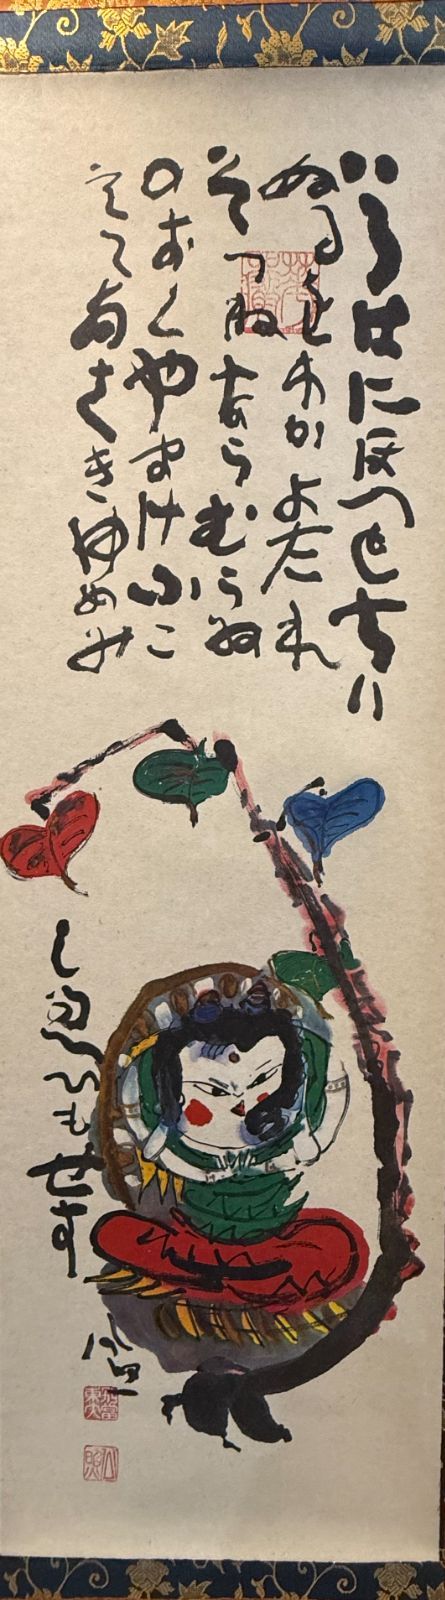 いろはにほへとちり
ぬるをわかよたれ
そつねならむうゐ
のおくやまけふこ
えてあさきゆめみ
しゑひもせす
公照